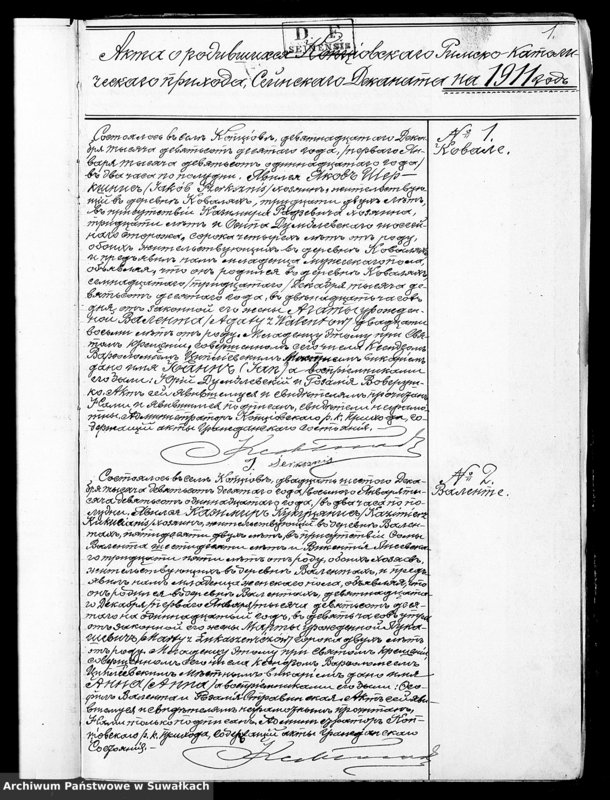 D F
SEINENSIS
1.
Акта о родившихся Копцёвскаго Римско-Католи-
ческаго прихода, Сейнскаго Деканата на 1911 годъ
№ 1.
Ковале.
Состоялось въ селѣ Копцёвѣ, девятнадцатаго Дека-
бря тысяча девятьсотъ десятаго года, /перваго Ян-
варя тысяча девятьсотъ одиннадцатаго года/
въ два часа по полудни. Явился Яковъ
/Jakób хозяинъ, жительствую-
щій въ деревнѣ Коваляхъ, тридцати двухъ лѣтъ,
въ присутствіи Казимира хозяина,
тридцати лѣтъ и шоссей-
наго сторожа, сорока четырехъ лѣтъ отъ роду,
обоихъ жительствующихъ въ деревнѣ Коваляхъ
и предъявилъ намъ младенца мужескаго пола,
объявляя, что онъ родился въ деревнѣ Коваляхъ
семнадцатаго /тридцатаго/ Декабря тысяча де-
вятьсотъ десятаго года, въ двѣнадцать часовъ
дня, отъ законной его жены Агаты урожден-
ной Валента /Agaty z Walentów/ двадцати
восьми лѣтъ отъ роду. Младенцу этому при Свя-
томъ крещеніи, совершенномъ сего числа Ксендзомъ
Варѳоломеемъ мѣстнымъ викаріемъ
дано имя Іоаннъ /Jan/, а воспріемниками
его были: Юрій и Розалія
Актъ сей явившемуся и свидѣтелямъ прочитанъ,
Нами и явившимся подписанъ, свидѣтели неграмо-
тны. Администраторъ Копцёвскаго р. к. прихода, со-
держащій акты гражданскаго состоянія.
J.
№ 2.
Валенте.
Состоялось въ селѣ Копцёвѣ, двадцать шестого Дека-
бря тысяча девятьсотъ десятаго года /восьмого Января ты-
сяча девятьсотъ одиннадцатаго года/, въ два часа по по-
лудни. Явился Казимиръ /Kazimierz
хозяинъ, жительствующій въ деревнѣ Вален-
тахъ, пятидесяти двухъ лѣтъ, въ присутствіи
Валента шестидесяти лѣтъ и Викентія
тридцати пяти лѣтъ отъ роду, обоихъ хозяевъ,
жительствующихъ въ деревнѣ Валентахъ, и предъ-
явилъ намъ младенца женскаго пола, объявляя, что
онъ родился въ деревнѣ Валентахъ, девятнадцата-
го Декабря /перваго Января/ тысяча девятьсотъ деся-
таго /на одиннадцатый/ годъ, въ девять часовъ утра
отъ законной его жены урожденной
сорока двухъ лѣтъ
отъ роду. Младенцу этому при святомъ крещеніи,
совершенномъ сего числа Ксендзомъ Варѳоломеемъ
мѣстнымъ викаріемъ дано имя
Анна /Anna/, а воспріемниками его были:
Валента и Розалія Актъ сей явив-
шемуся и свидѣтелямъ неграмотнымъ прочитанъ,
Нами только подписанъ. Администраторъ Коп-
цёвскаго р. к. прихода, содержащій акты гражданскаго
состоянія.
Archiwum Państwowe w Suwałkach